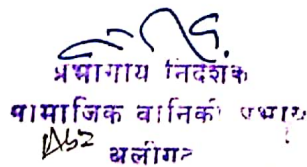 प्रभागीय निदेशक
सामाजिक वानिकी प्रभाग
अलीगढ़